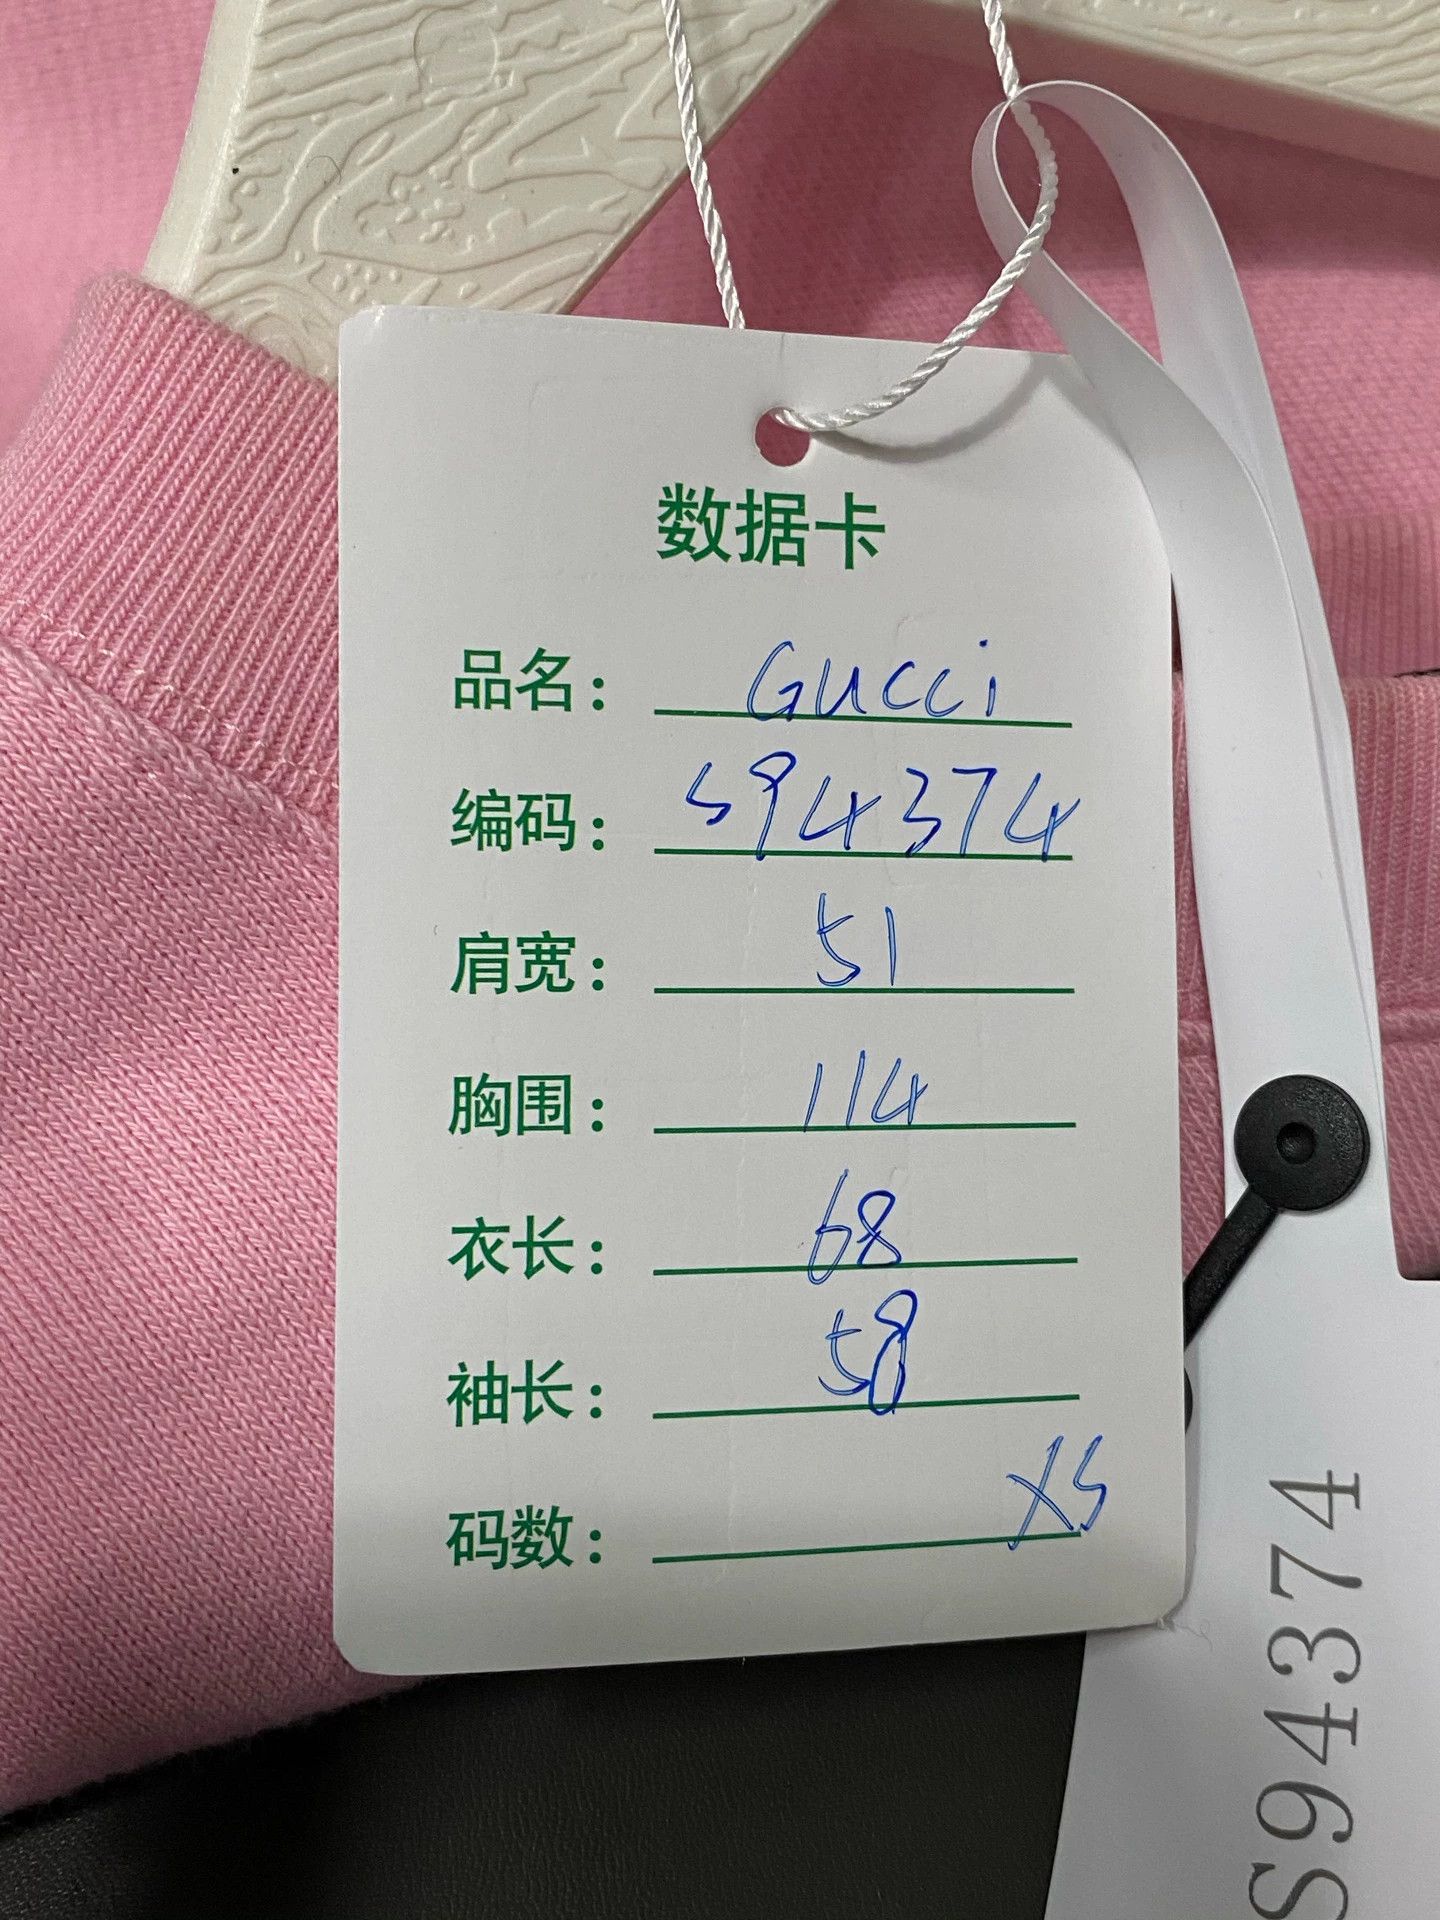 数据卡
品名: Gucci
编码: S94374
肩宽: 51
胸围: 114
衣长: 68
袖长: 58
码数: XS
S94374